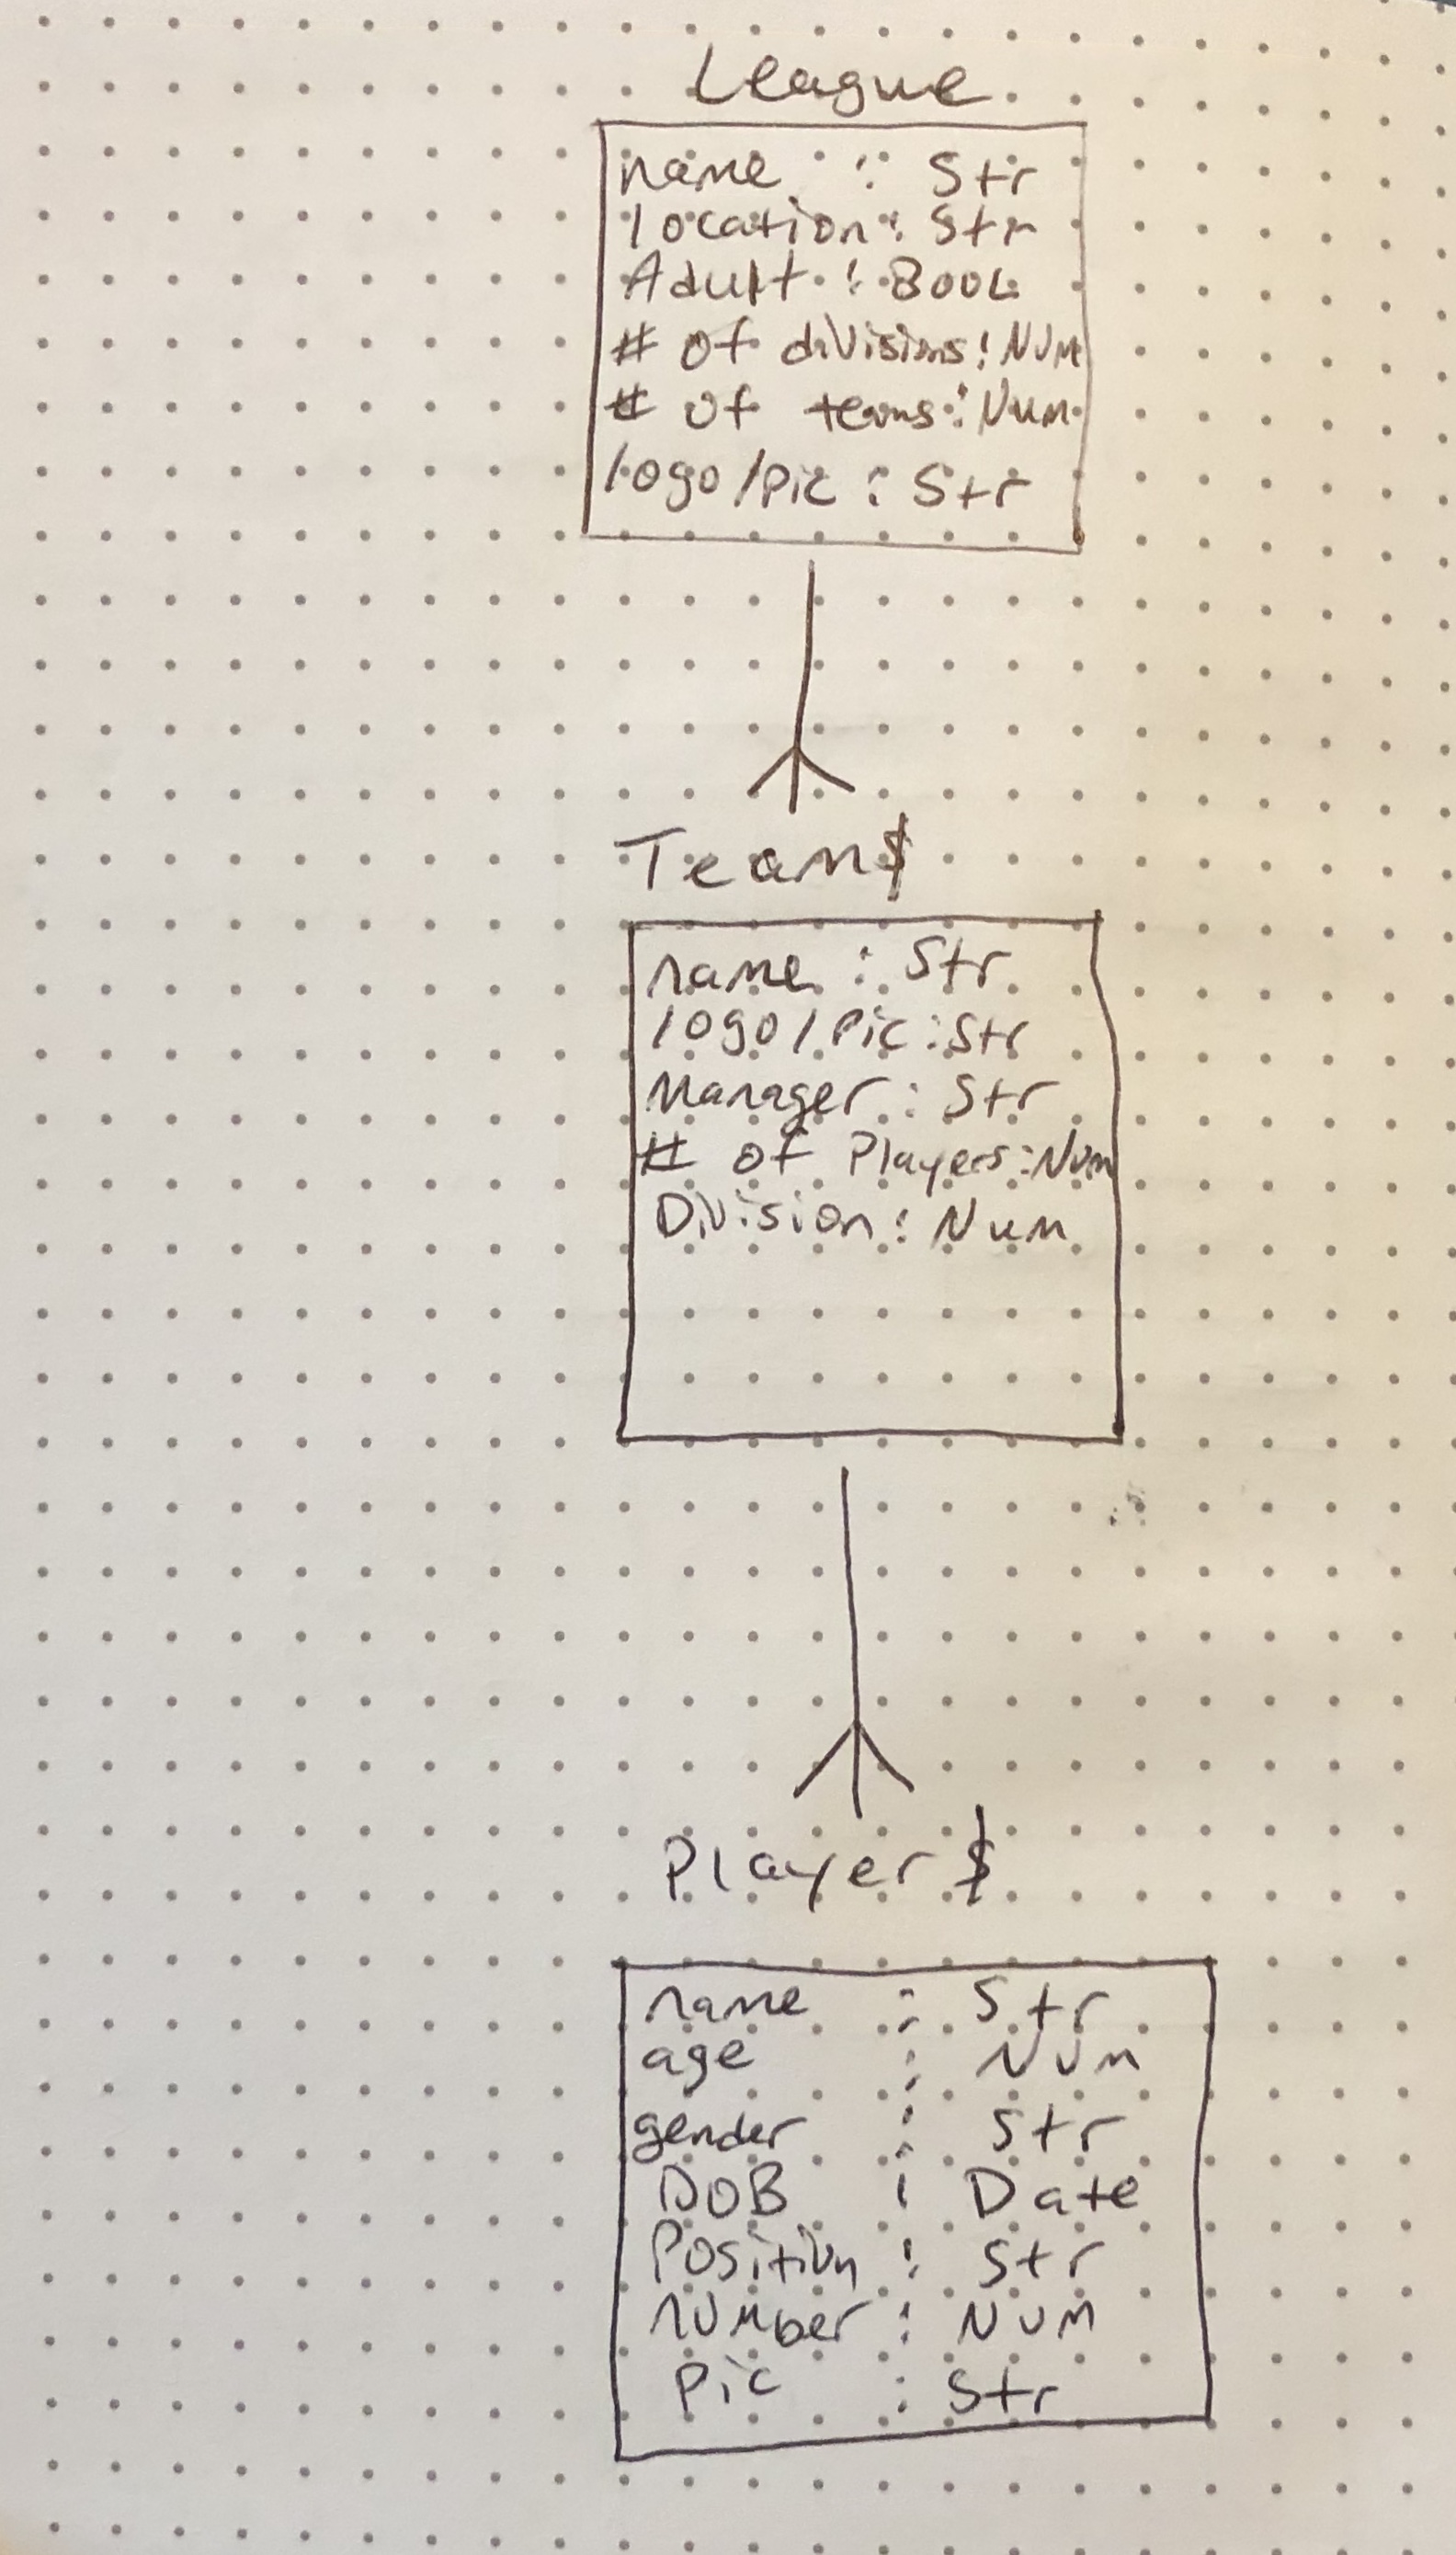 League
name : Str
location : Str
Adult : BOOL
# of divisions : Num
# of teams : Num
logo/pic : Str
Team$
name : Str
logo/Pic : Str
Manager : Str
# of Players : Num
Division : Num
Player$
name : Str
age : Num
gender : Str
DOB : Date
Position : Str
number : Num
Pic : Str